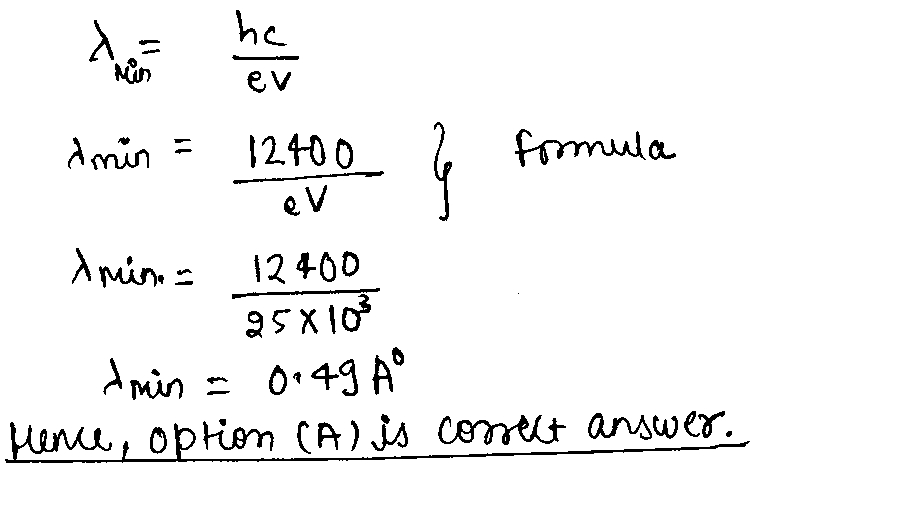 λmin = hc/ev
λmin = 12400/eV } formula
λmin. = 12400/25×10³
λmin = 0.49 A⁰
Hence, option (A) is correct answer.